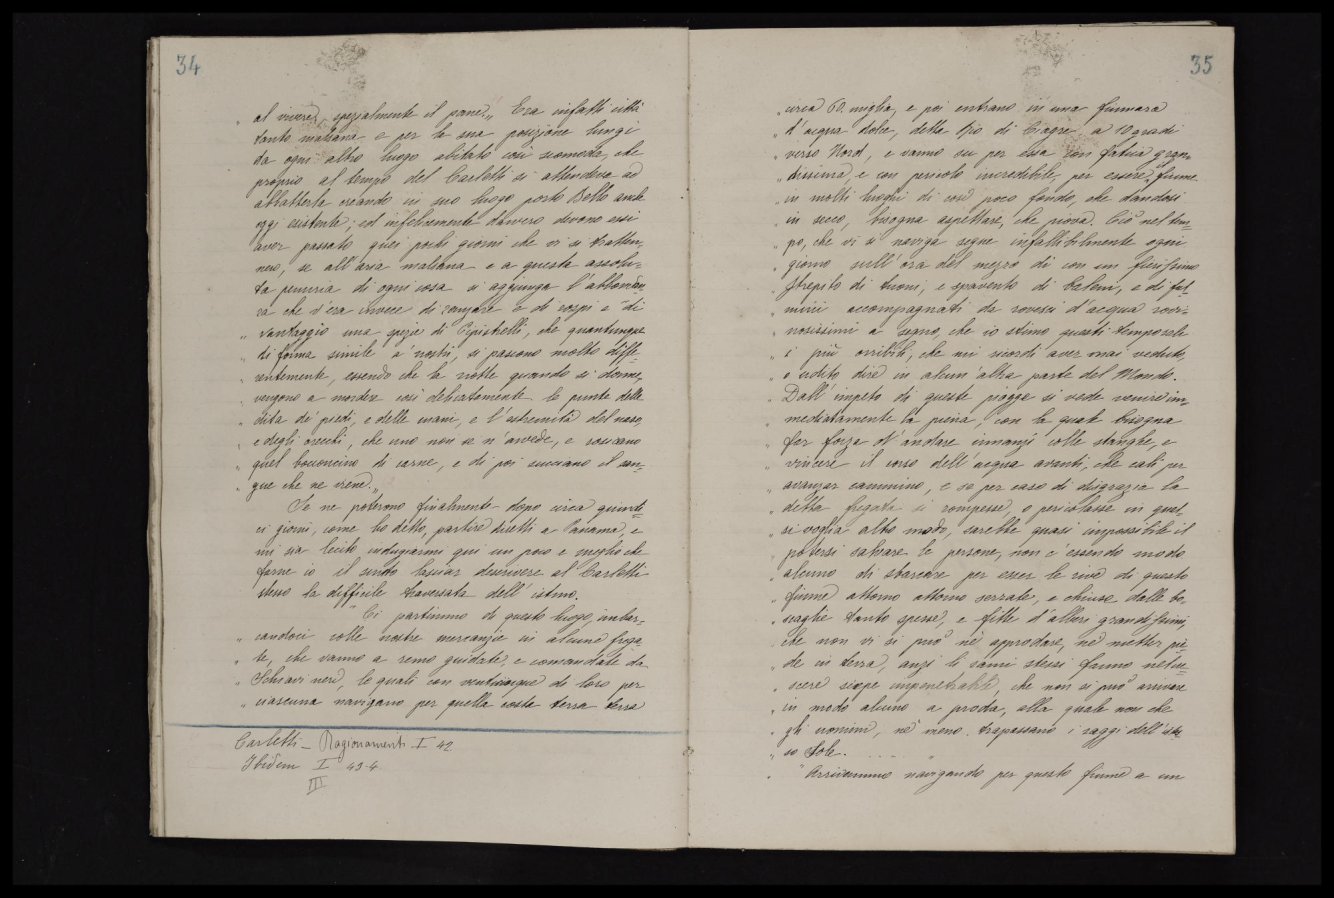 34
„ al vivere, spezialmente il pane.„ Era infatti città
tanto malsana e per la sua posizione lungi
da ogni altro luogo abitato così scomoda, che
proprio al tempo del Carletti si attendeva ad
abbatterla creando in suo luogo porto Bello anch
oggi esistente; ed infelicemente davvero devono essi
aver passato quei pochi giorni che vi si tratten„
nero, se all'aria malsana e a questa assolu=
ta penuria di ogni cosa si aggiunga l'abbondan„
za che v'era invece di zanzare e di rospi e "di
„ vantaggio una spezie di Pipistrelli, che quantunque
„ di forma simile a' nostri, si pascono molto diffe=
„ rentemente, essendo che la notte quando si dorme,
„ vengono a mordere così delicatamente le punte delle
„ dita de' piedi, e delle mani, e l'estremità del naso,
„ e degli orecchi, che uno non se n'avvede, e rosicano
„ quel bocconcino di carne, e di poi succiano il san=
„ gue che ne viene.„
Se ne poterono finalmente dopo circa quindi=
ci giorni, come ho detto, partire diretti a Panama, e
mi sia lecito indugiarmi qui un poco e meglio che
farne io il sunto lasciar descrivere al Carletti
stesso la difficile traversata dell'istmo.
" Ci partimmo di questo luogo, imbar=
„ candoci colle nostre mercanzie in alcune frega=
„ te, che vanno a remo guidate e comandate da
„ Schiavi neri, le quali con venticinque di loro per
„ ciascuna navigano per quella costa terra terra
Carletti – Ragionamenti I 42
Ibidem I 43-4
III
35
„ circa 60 miglia, e poi entrano in una fiumara
„ d'acqua dolce, detta Rio di Ciagre a 10 gradi
„ verso Nord, e vanno su per essa con fatica gran=
„ dissima, e con pericolo incredibile, per essere fiume
„ in molti luoghi di così poco fondo, che dandosi
„ in secco, bisogna aspettare, che piova. Ciò nel tem=
„ po, che vi si naviga segue infallibilmente ogni
„ giorno sull'ora del mezzo dì con un fierissimo
„ strepito di tuoni, e spavento di baleni, e di ful=
„ mini accompagnati da rovesci d'acqua rovi=
„ nosissimi a segno, che io stimo questi temporali
„ i più orribili, che mi ricordi aver mai veduto,
„ o udito dire in alcun'altra parte del Mondo.
„ Dall'impeto di queste piogge si vede venire im=
„ mediatamente la piena, con la quale bisogna
„ far forza d'andare innanzi colle stanghe, e
„ vincere il corso dell'acqua avanti, che cali per
„ avanzar cammino, e se per caso di disgrazia la
„ detta fregata si rompesse, o pericolasse in qual
„ si voglia altro modo, sarebbe quasi impossibile il
„ potersi salvare le persone, non c'essendo modo
„ alcuno di sbarcare per esser le rive di questo
„ fiume attorno attorno serrate, e chiuse dalle bo„
„ scaglie tanto spesse, e fitte d'alberi grandissimi,
„ che non vi si può nè approdare, nè metter pie=
„ de in terra, anzi li rami stessi fanno nel cre=
„ scere siepe impenetrabile, che non si può arrivare
„ in modo alcuno a proda, alla quale non che
„ gli uomini, nè meno trapassano i raggi dell'istes
„ so Sole. . . . . . „
„ "Arrivammo navigando per questo fiume a un